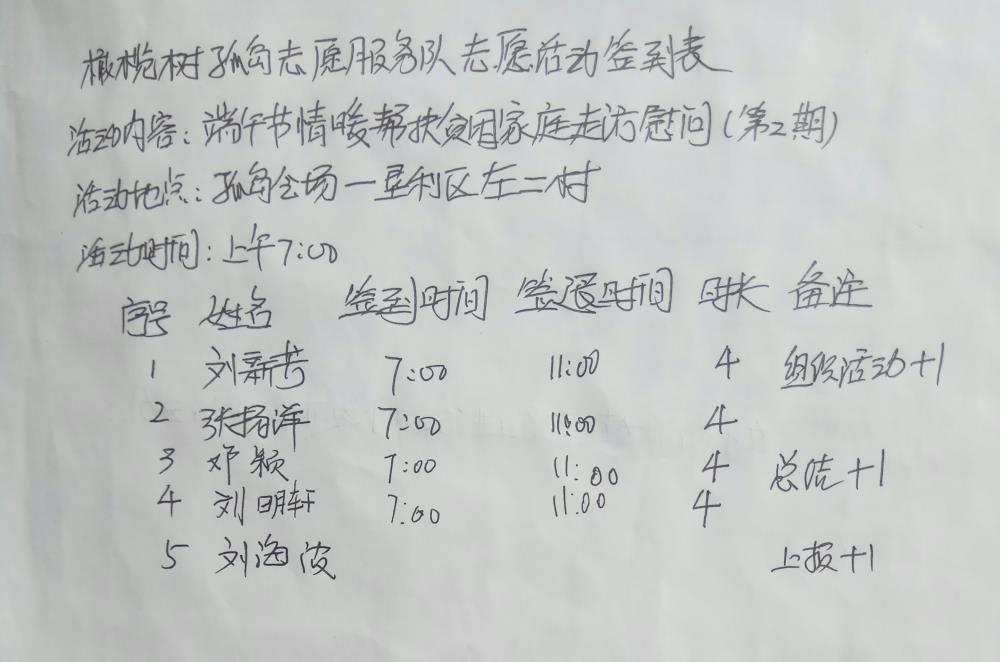 橄榄树孤岛志愿服务队志愿活动签到表
活动内容：端午节情暖帮扶贫困家庭走访慰问（第2期）
活动地点：孤岛会场一垦利区左二村
活动时间：上午7:00
序号 姓名 签到时间 签退时间 时长 备注
1 刘新 7:00 11:00 4 组织活动+1
2 张扬洋 7:00 11:00 4
3 邓颖 7:00 11:00 4 总结+1
4 刘明轩 7:00 11:00 4
5 刘海波 上报+1